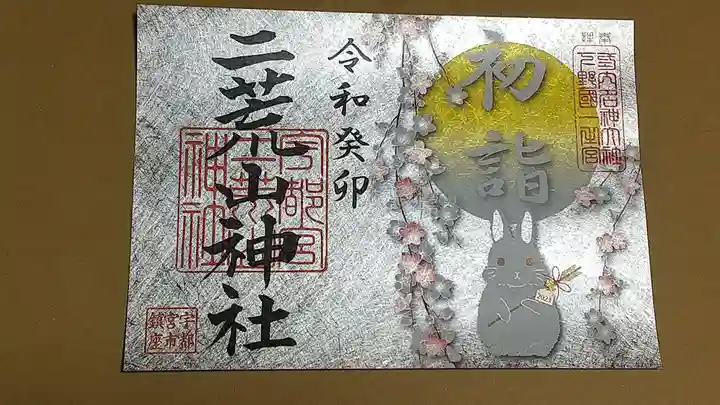 奉拝
延喜式内名神大社
下野國一之宮
初詣
令和癸卯
二荒山神社
宇都宮
二荒山
神社
宇都
宮市
鎮座
2023